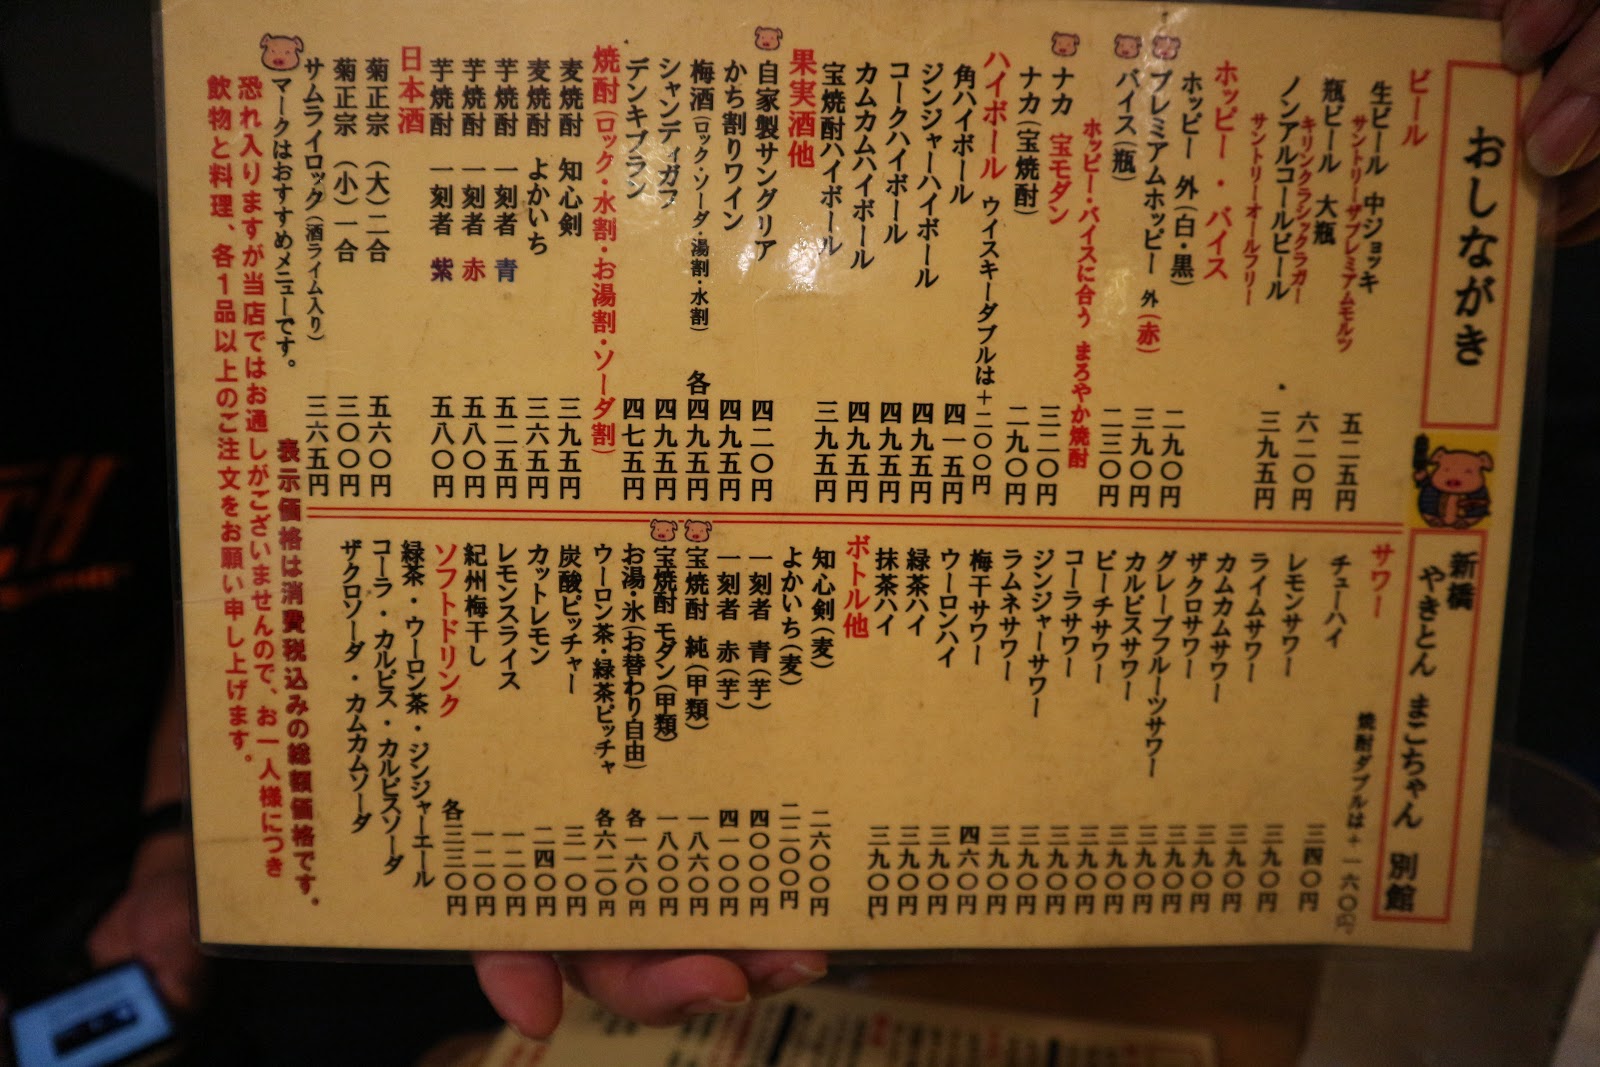 おしながき
ビール
生ビール 中ジョッキ 五二五円
サントリーザプレミアムモルツ
瓶ビール 大瓶 六二〇円
キリンクラシックラガー
ノンアルコールビール 三九五円
サントリーオールフリー
ホッピー・バイス
ホッピー 外(白・黒) 二九〇円
プレミアムホッピー 外(赤) 三九〇円
バイス(瓶) 二三〇円
ホッピー・バイスに合う まろやか焼酎
ナカ 宝モダン 三二〇円
ナカ(宝焼酎) 二九〇円
ハイボール ウイスキーダブルは+二〇〇円
角ハイボール 四一五円
ジンジャーハイボール 四九五円
コークハイボール 四九五円
カムカムハイボール 四九五円
宝焼酎ハイボール 三九五円
果実酒他
自家製サングリア 四二〇円
かち割りワイン 四九五円
梅酒(ロック・ソーダ・湯割・水割) 各四九五円
シャンディガフ 四九五円
デンキブラン 四七五円
焼酎(ロック・水割・お湯割・ソーダ割)
麦焼酎 知心剣 三九五円
麦焼酎 よかいち 三六五円
芋焼酎 一刻者 青 五二五円
芋焼酎 一刻者 赤 五八〇円
芋焼酎 一刻者 紫 五八〇円
日本酒
菊正宗(大)二合 五六〇円
菊正宗(小)一合 三〇〇円
サムライロック(酒ライム入り) 三六五円
新橋 やきとん まこちゃん 別館
サワー 焼酎ダブルは+一六〇円
チューハイ 三四〇円
レモンサワー 三九〇円
ライムサワー 三九〇円
カムカムサワー 三九〇円
ザクロサワー 三九〇円
グレープフルーツサワー 三九〇円
カルピスサワー 三九〇円
ピーチサワー 三九〇円
コーラサワー 三九〇円
ジンジャーサワー 三九〇円
ラムネサワー 三九〇円
梅干サワー 四六〇円
ウーロンハイ 三九〇円
緑茶ハイ 三九〇円
抹茶ハイ 三九〇円
ボトル他
知心剣(麦) 二六〇〇円
よかいち(麦) 二二〇〇円
一刻者 青(芋) 四〇〇〇円
一刻者 赤(芋) 四一〇〇円
宝焼酎 純(甲類) 一八六〇円
宝焼酎 モダン(甲類) 一八〇〇円
お湯・氷(お替わり自由) 各一六〇円
ウーロン茶・緑茶ピッチャ 各六二〇円
炭酸ピッチャー 三一〇円
カットレモン 二四〇円
レモンスライス 一二〇円
紀州梅干し 一二〇円
ソフトドリンク 各三三〇円
緑茶・ウーロン茶・ジンジャーエール
コーラ・カルピス・カルピスソーダ
ザクロソーダ・カムカムソーダ
マークはおすすめメニューです。
表示価格は消費税込みの総額価格です。
恐れ入りますが当店ではお通しがございませんので、お一人様につき
飲物と料理、各1品以上のご注文をお願い申し上げます。